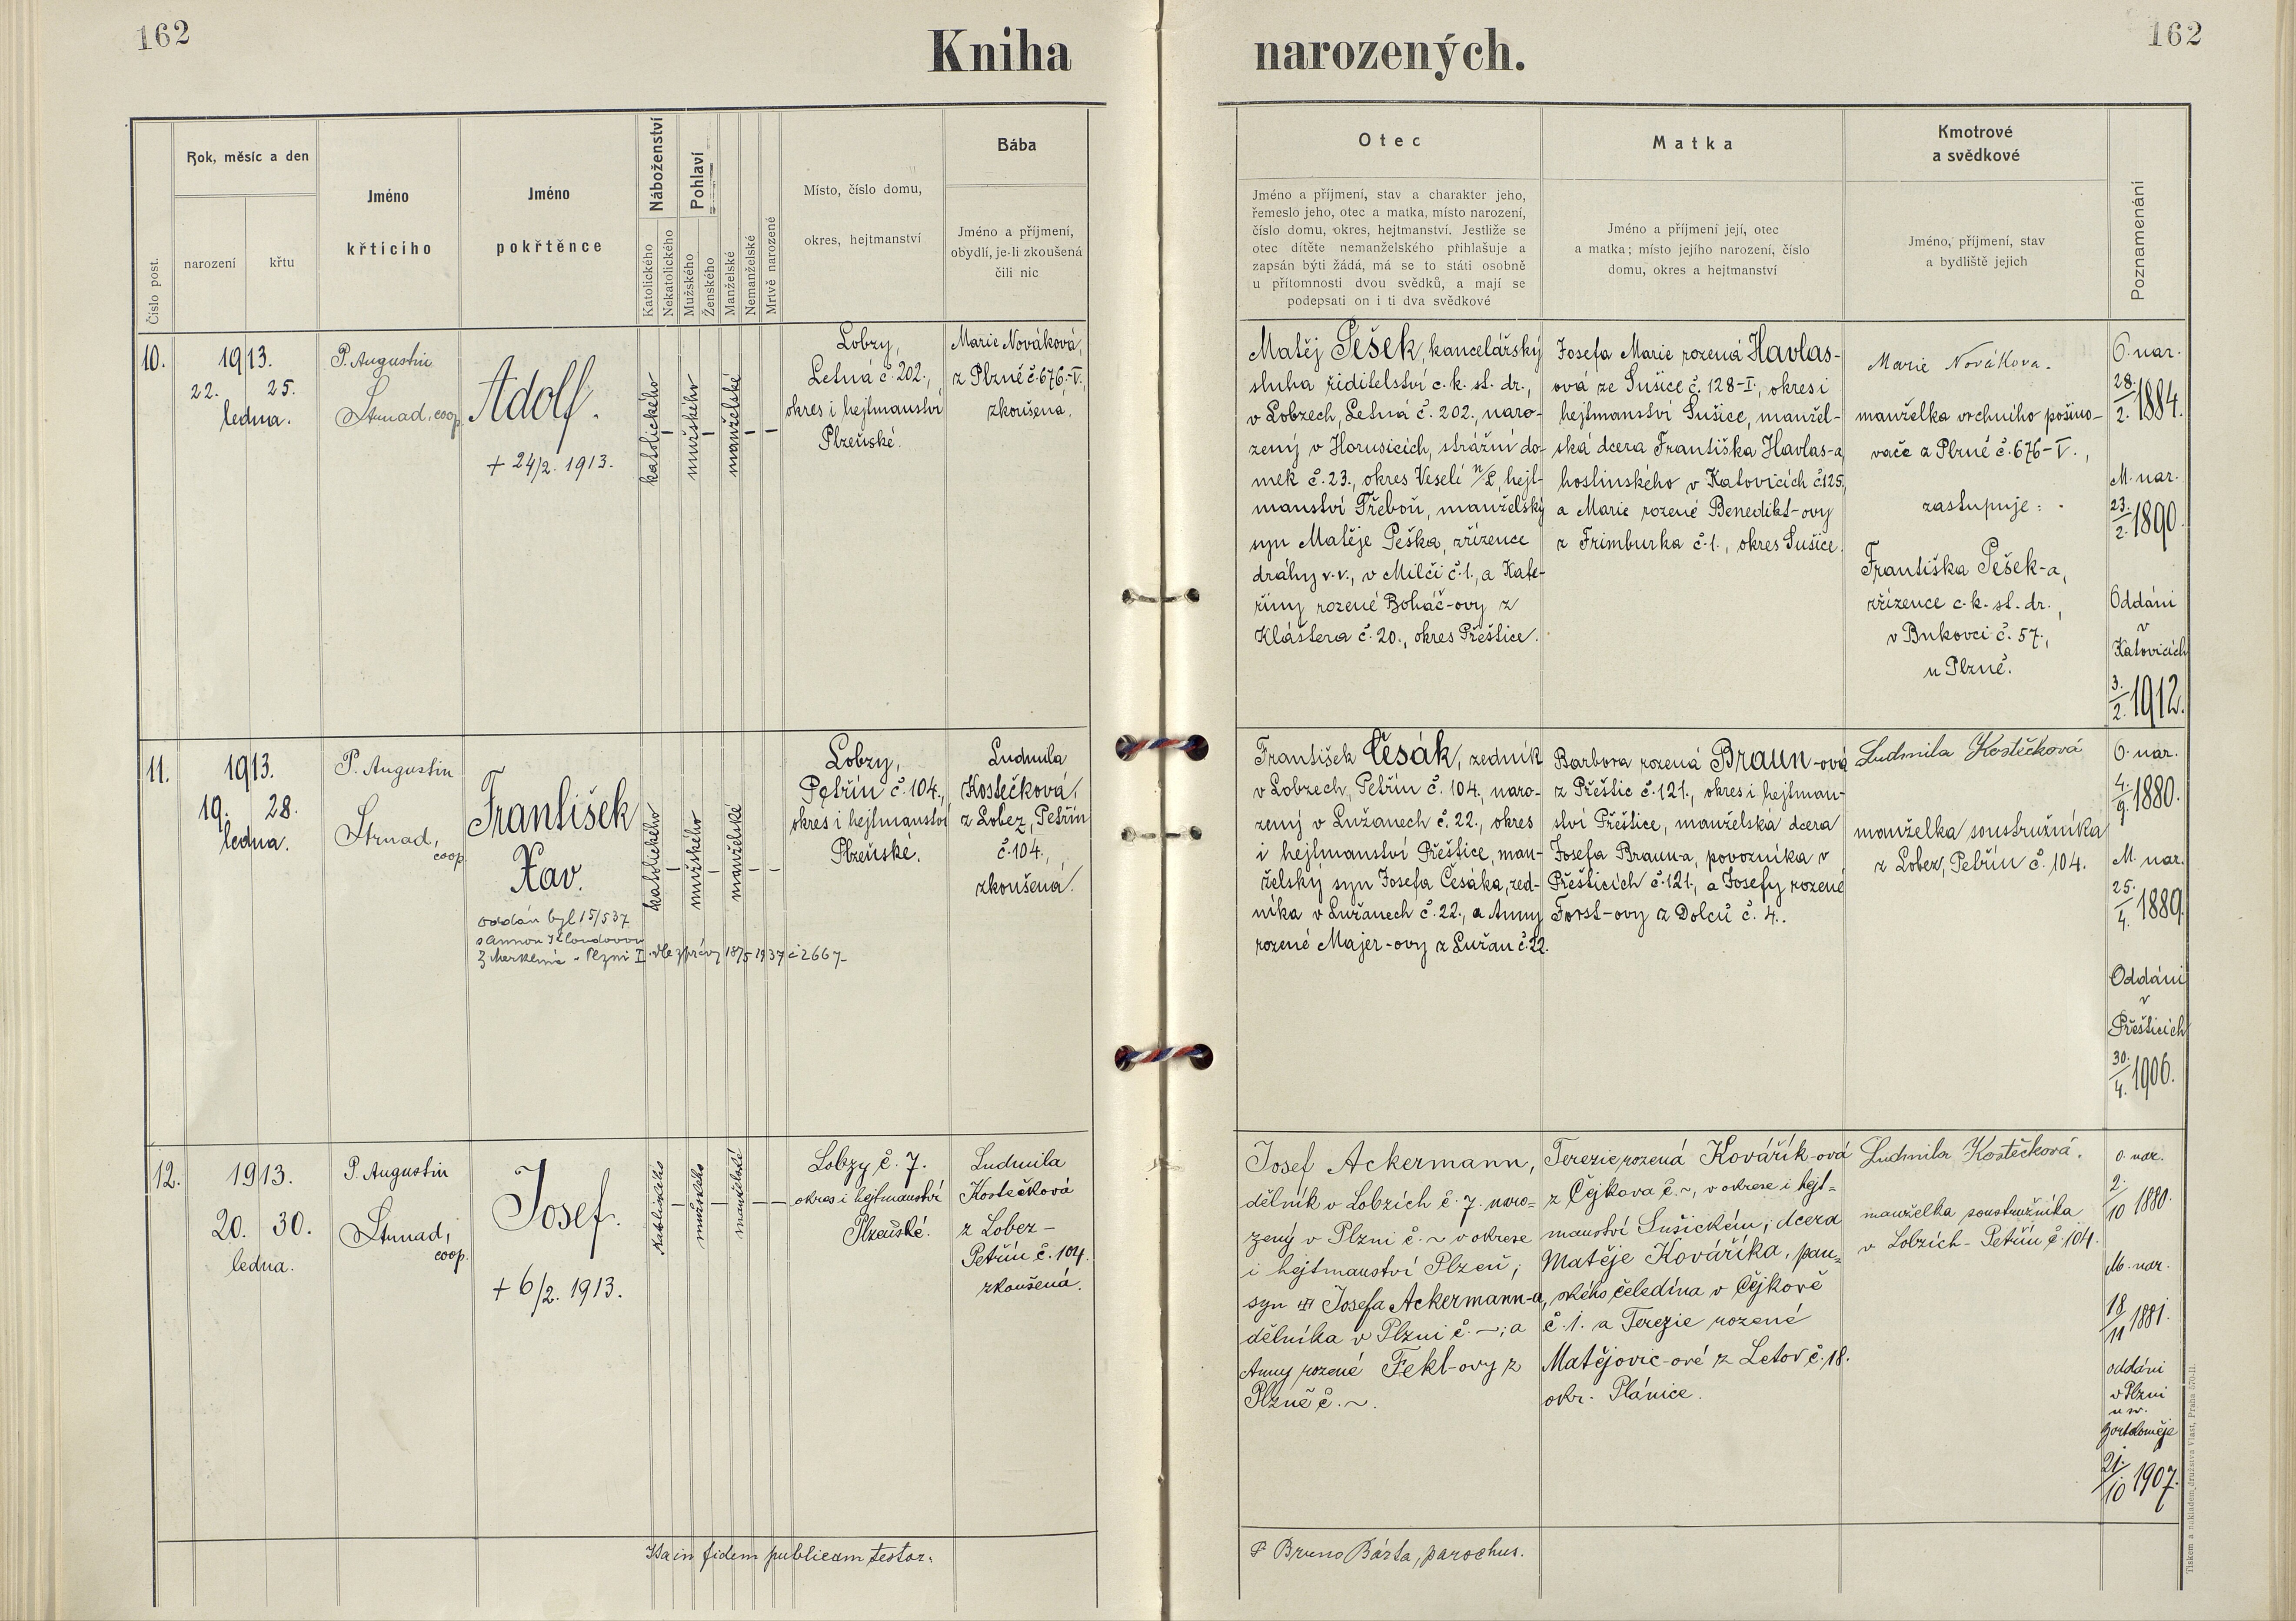 162
Kniha narozených.
162
Číslo post.
Rok, měsíc a den
narození
křtu
Jméno
křtícího
Jméno
pokřtěnce
Náboženství
Katolického
Nekatolického
Pohlaví
Mužského
Ženského
Manželské
Nemanželské
Mrtvě narozené
Místo, číslo domu,
okres, hejtmanství
Bába
Jméno a příjmení,
obydlí, je-li zkoušená
čili nic
Otec
Jméno a příjmení, stav a charakter jeho,
řemeslo jeho, otec a matka, místo narození,
číslo domu, okres, hejtmanství. Jestliže se
otec dítěte nemanželského přihlašuje a
zapsán býti žádá, má se to státi osobně
u přítomnosti dvou svědků, a mají se
podepsati on i ti dva svědkové
Matka
Jméno a příjmení její, otec
a matka; místo jejího narození, číslo
domu, okres a hejtmanství
Kmotrové
a svědkové
Jméno, příjmení, stav
a bydliště jejich
Poznamenání
10.
1913.
22. 25.
ledna.
P. Augustin
Strnad, coop.
Adolf.
+ 24/2. 1913.
katolického
—
mužského
—
manželské
—
—
Lobzy,
Letná č. 202.,
okres i hejtmanství
Plzeňské.
Marie Nováková,
z Plzně č. 676.-V.,
zkoušená.
Matěj Pešek, kancelářský
sluha ředitelství c. k. st. dr.,
v Lobzech, Letná č. 202., naro-
zený v Horusicích, strážní do-
mek č. 23., okres Veselí n/L, hejt-
manství Třeboň, manželský
syn Matěje Peška, zřízence
dráhy v. v., v Milči č. 1., a Kate-
řiny rozené Boháč-ovy z
Kláštera č. 20., okres Přeštice.
Josefa Marie rozená Havlas-
ová ze Sušice č. 128-I., okres i
hejtmanství Sušice, manžel-
ská dcera Františka Havlas-a,
hostinského v Katovicích č. 125.,
a Marie rozené Benedikt-ovy
z Frimburka č. 1., okres Sušice.
Marie Nováková.
manželka vrchního pošino-
vače z Plzně č. 676-V.,
zastupuje:
Františka Pešek-a,
zřízence c. k. st. dr.,
v Bukovci č. 57.,
u Plzně.
O. nar.
28./2. 1884.
M. nar.
23./2. 1890.
Oddáni
v
Katovicích
3./2. 1912.
11.
1913.
19. 28.
ledna.
P. Augustin
Strnad,
coop.
František
Xav.
oddán byl 15/5 37
s Annou Kloudovou
z Merklína v Plzni I. dle zprávy 18/5 1937 č 2667-
katolického
—
mužského
—
manželské
—
—
Lobzy,
Petřín č. 104.,
okres i hejtmanství
Plzeňské.
Ludmila
Kostečková,
z Lobez, Petřín
č. 104.,
zkoušená.
František Česák, zedník
v Lobzech, Petřín č. 104., naro-
zený v Lužanech č. 22., okres
i hejtmanství Přeštice, man-
želský syn Josefa Česáka, zed-
níka v Lužanech č. 22., a Anny
rozené Majer-ovy z Lužan č. 22.
Barbora rozená Braun-ová
z Přeštic č. 121., okres i hejtman-
ství Přeštice, manželská dcera
Josefa Braun-a, povozníka v
Přešticích č. 121., a Josefy rozené
Forst-ovy z Dolců č. 4..
Ludmila Kostěčková
manželka soustružníka
z Lobez, Petřín č. 104.
O. nar.
4./9. 1880.
M. nar.
25./4. 1889.
Oddáni
v
Přešticích
30./4. 1906.
12.
1913.
20. 30.
ledna.
P. Augustin
Strnad,
coop.
Josef.
+ 6/2. 1913.
Katolického
—
mužského
—
manželské
—
—
Lobzy č. 7.
okres i hejtmanství
Plzeňské.
Ludmila
Kostečková
z Lobez –
Petřín č. 104.
zkoušená.
Josef Ackermann,
dělník v Lobzích č. 7. naro=
zený v Plzni č. ~ v okrese
i hejtmanství Plzeň;
syn Josefa Ackermann-a,
dělníka v Plzni č. ~; a
Anny rozené Fekl-ovy z
Plzně č. ~.
Terezie rozená Kovářík-ová
z Čejkova č. ~, v okrese i hejt=
manství Sušickém; dcera
Matěje Kováříka, pan=
ského čeledína v Čejkově
č. 1. a Terezie rozené
Matějovic-ové z Letov č. 18.
okr. Plánice.
Ludmila Kostěčková.
manželka soustružníka
v Lobzích – Petřín č. 104.
O. nar.
2./10 1880.
M. nar.
18/11 1881.
oddáni
v Plzni
u sv.
Bartoloměje
21./10 1907.
Ita in fidem publicam testor:
P. Bruno Bárta, parochus.
Tiskem a nákladem družstva Vlast, Praha 570-II.